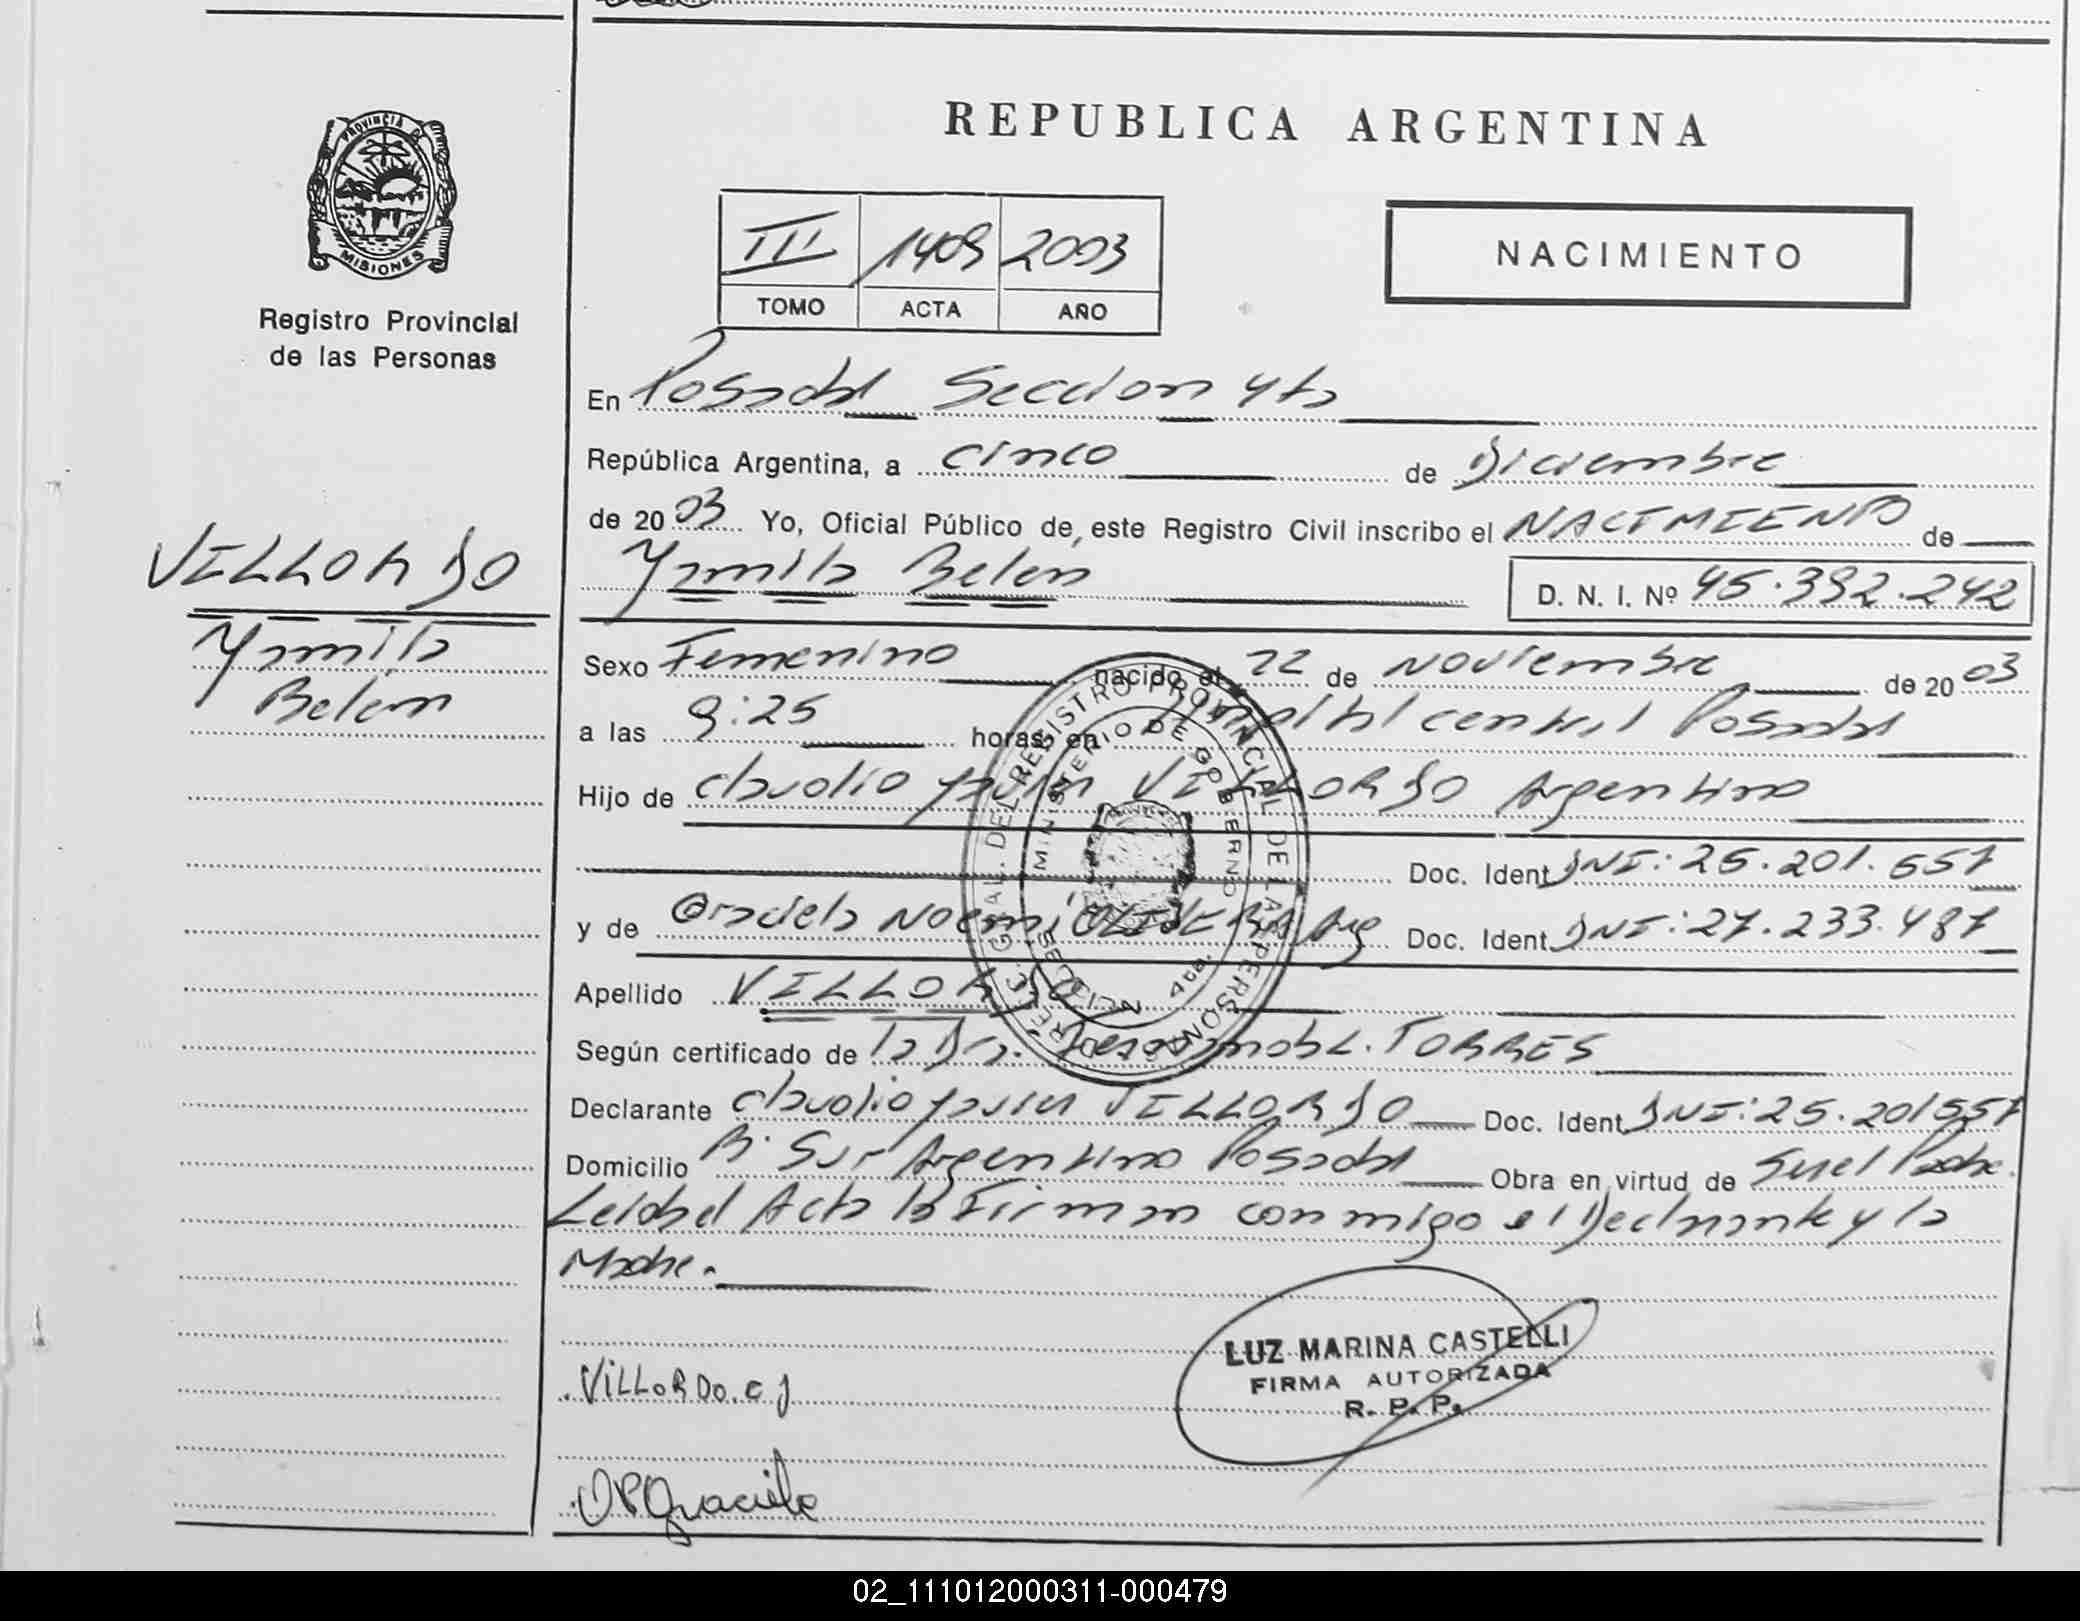 REPUBLICA ARGENTINA
PROVINCIA DE
MISIONES
Registro Provincial
de las Personas
III 1409 2003
TOMO ACTA AÑO
NACIMIENTO
En Posadas Seccion 4ta
República Argentina, a cinco de Diciembre
de 2003 Yo, Oficial Público de este Registro Civil inscribo el NACIMIENTO de
VILLORDO
Yamila Belen D. N. I. Nº 45.392.242
Yamila
Belen
Sexo Femenino nacido el 22 de Noviembre de 2003
a las 9:25 horas, en Hospital central Posadas
Hijo de Claudio Javier VILLORDO Argentino
Doc. Ident DNI: 25.201.557
y de Graciela Noemi Arg Doc. Ident DNI: 27.233.487
Apellido VILLORDO
Según certificado de la Dra. L. TORRES
Declarante Claudio Javier VILLORDO Doc. Ident DNI: 25.201557
Domicilio B· Sur Argentino Posadas Obra en virtud de Ser el Padre.
Leida el Acta la Firman conmigo el Declarante y la
Madre.
LUZ MARINA CASTELLI
FIRMA AUTORIZADA
R. P. P.
VILLORDO. C. J
Graciela
DIREC. GRAL. DEL REGISTRO PROVINCIAL DE LAS PERSONAS
MINISTERIO DE GOBIERNO
02_111012000311-000479